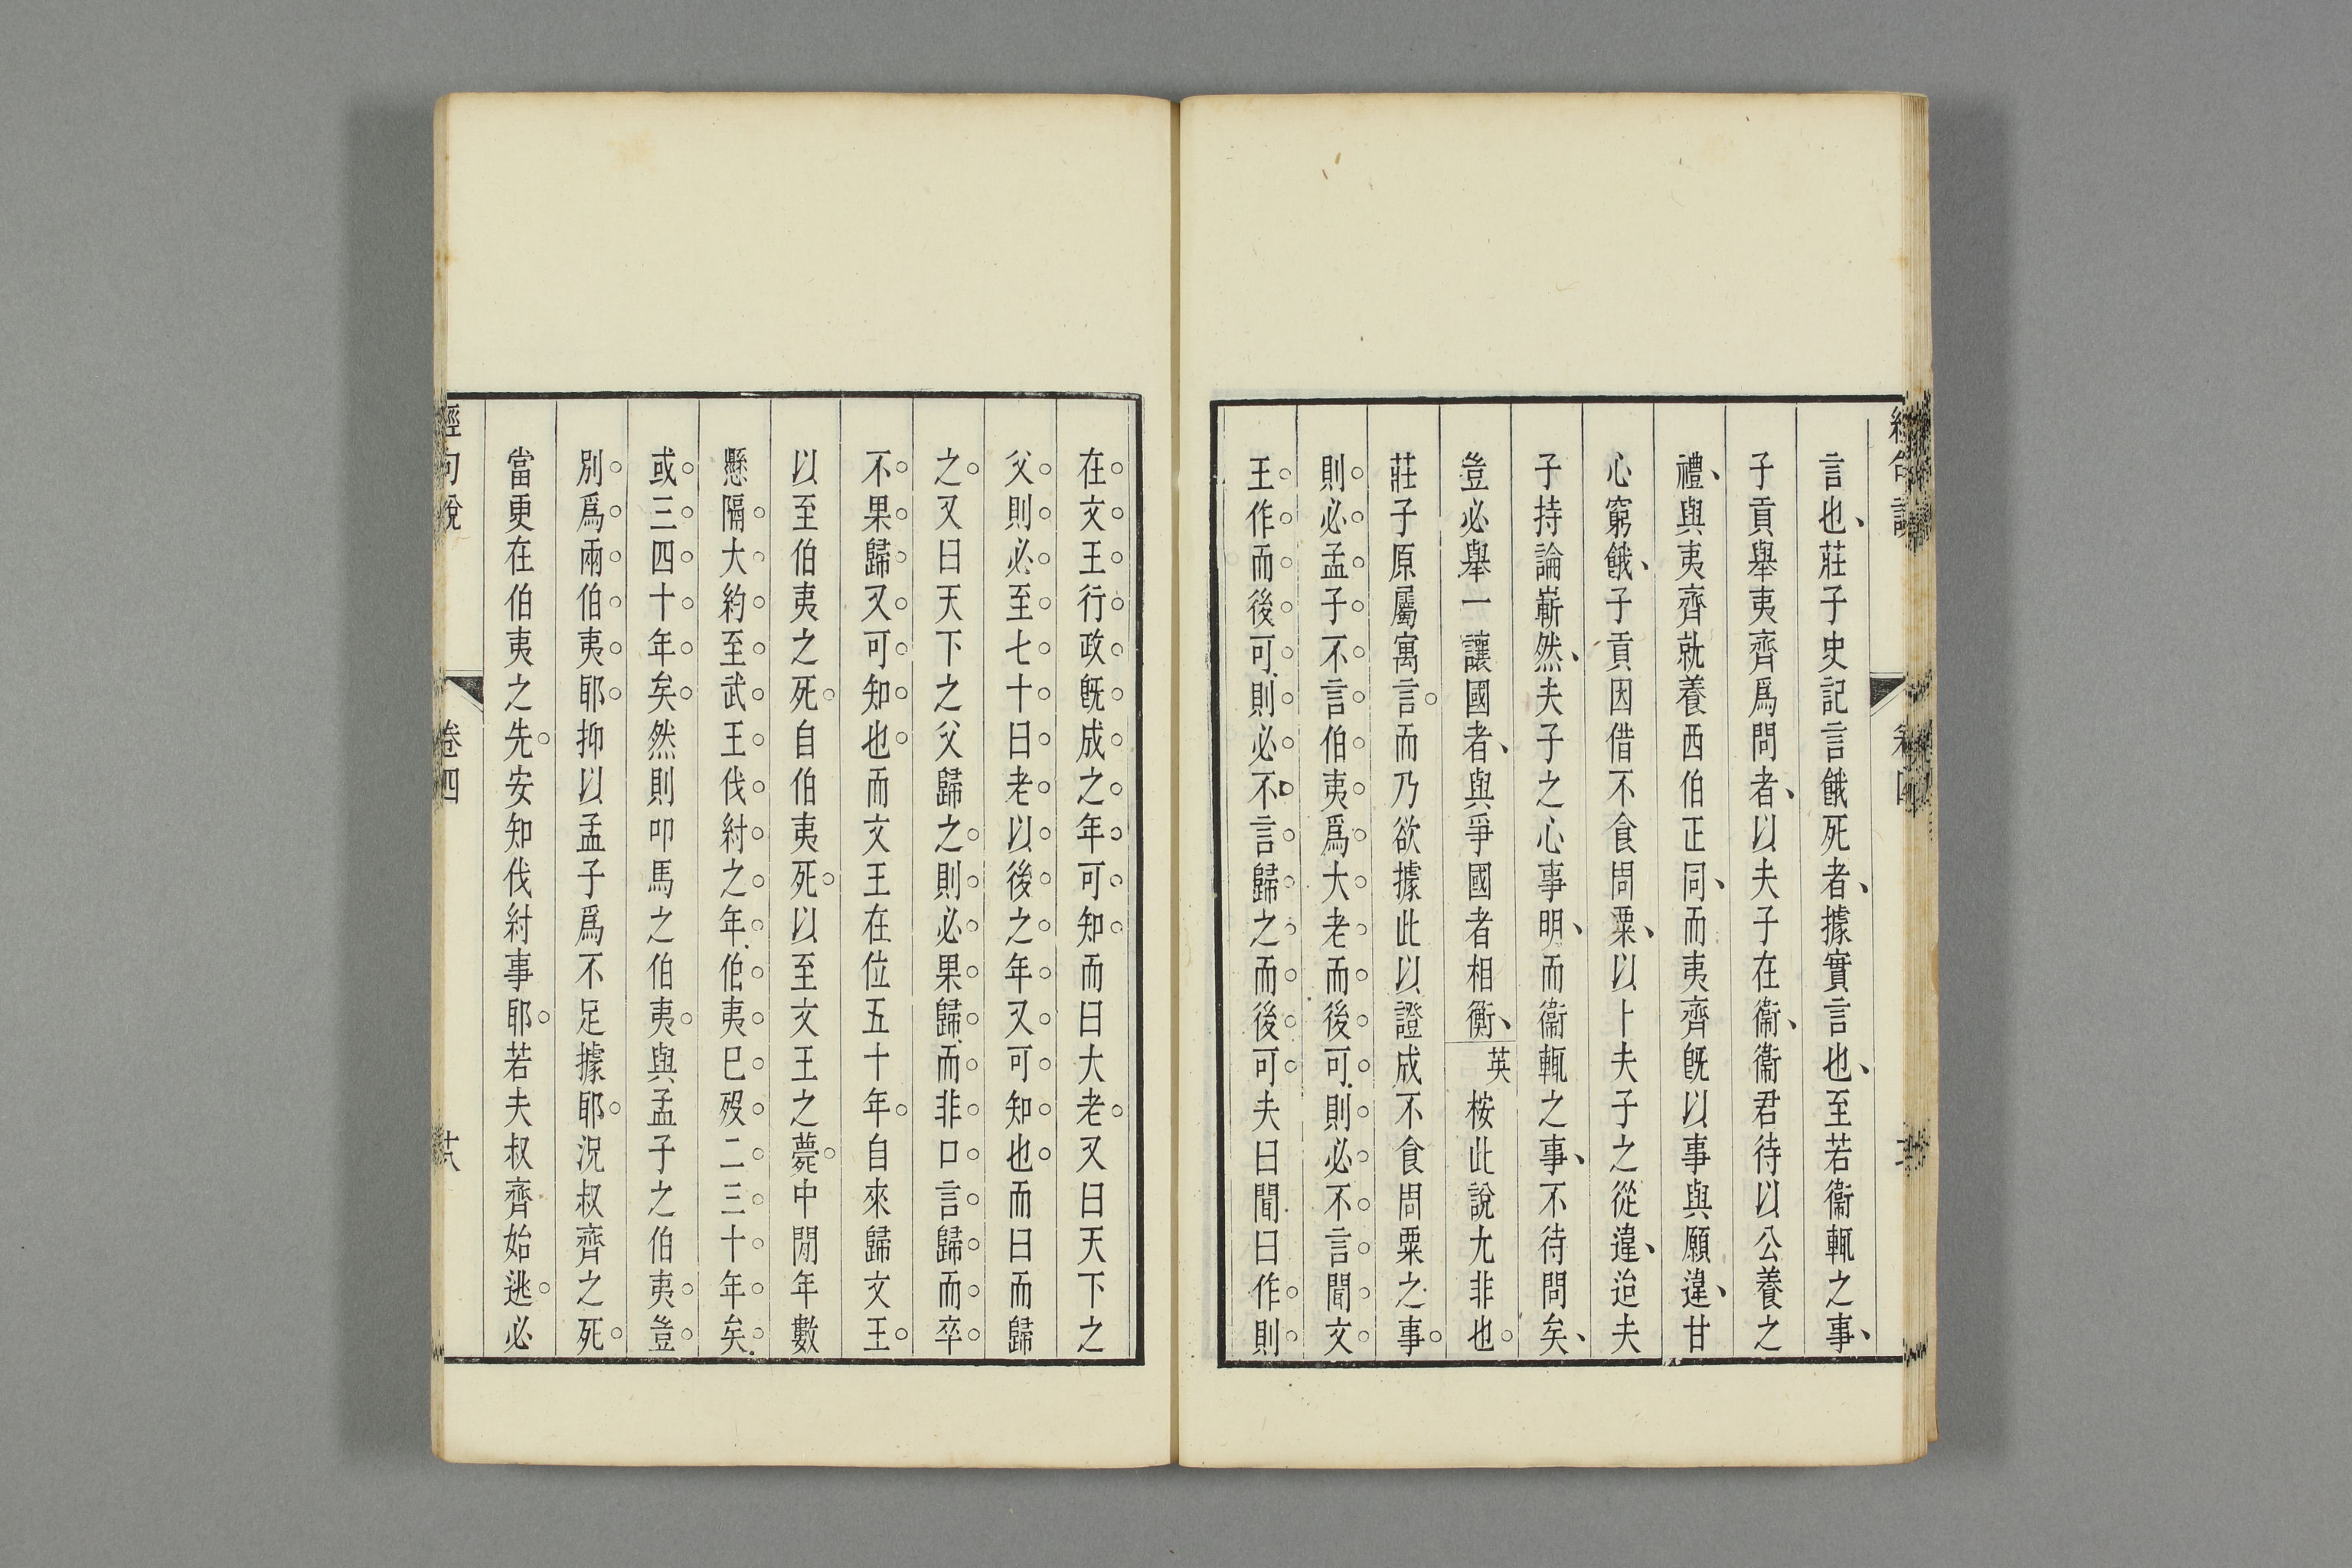 言也莊子史記言餓死者據實言也至若衞輒之事
子貢舉夷齊爲問者以夫子在衞衞君待以公養之
禮與夷齊就養西伯正同而夷齊旣以事與願違甘
心窮餓子貢因借不食周粟以卜夫子之從違迨夫
子持論嶄然夫子之心事明而衞輒之事不待問矣
豈必舉一讓國者與爭國者相衡英桉此說尤非也
莊子原屬寓言而乃欲據此以證成不食周粟之事
則必孟子不言伯夷爲大老而後可則必不言聞文
王作而後可則必不言歸之而後可夫曰聞曰作則
在文王行政旣成之年可知而曰大老又曰天下之
父則必至七十曰老以後之年又可知也而曰而歸
之又曰天下之父歸之則必果歸而非口言歸而卒
不果歸又可知也而文王在位五十年自來歸文王
以至伯夷之死自伯夷死以至文王之薨中閒年數
懸隔大約至武王伐紂之年伯夷已歿二三十年矣
或三四十年矣然則叩馬之伯夷與孟子之伯夷豈
別爲兩伯夷耶抑以孟子爲不足據耶況叔齊之死
當更在伯夷之先安知伐紂事耶若夫叔齊始逃必
經句說
卷四